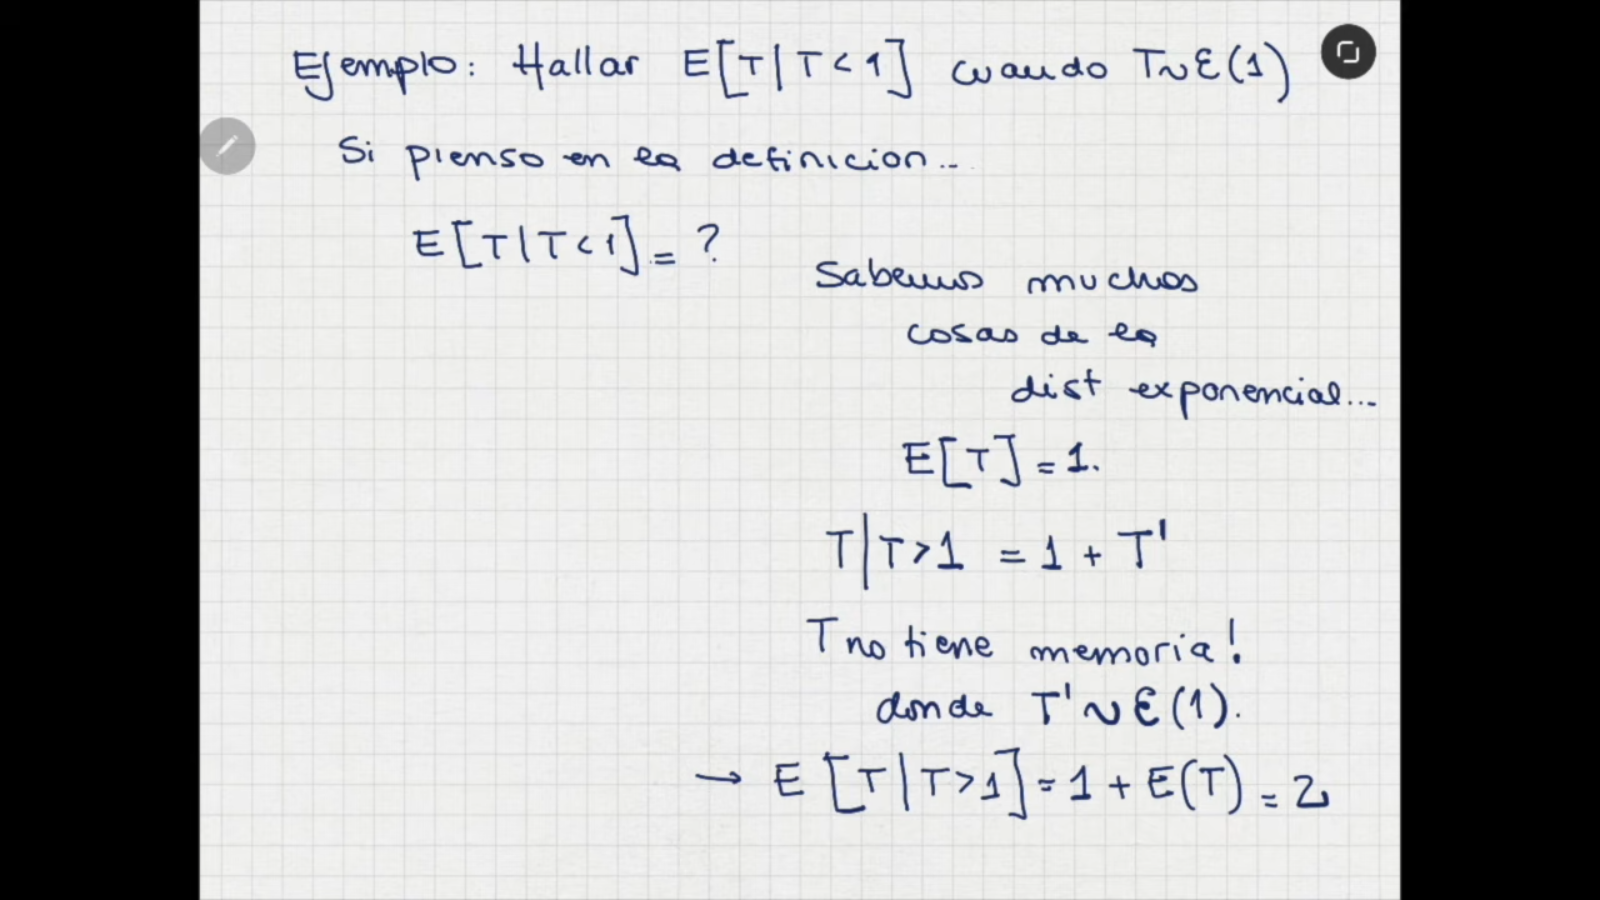 Ejemplo: Hallar E[T|T<1] cuando T~ε(1)
Si pienso en la definicion...
E[T|T<1] = ?
Sabemos muchos
cosas de la
dist exponencial...
E[T] = 1.
T|T>1 = 1 + T'
T no tiene memoria!
donde T'~ε(1).
→ E[T|T>1] = 1 + E(T) = 2